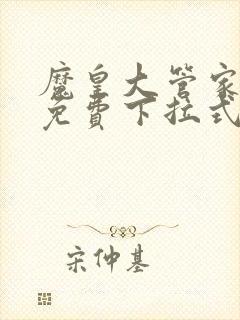 魔皇大管家
免費下拉式
宋仲基